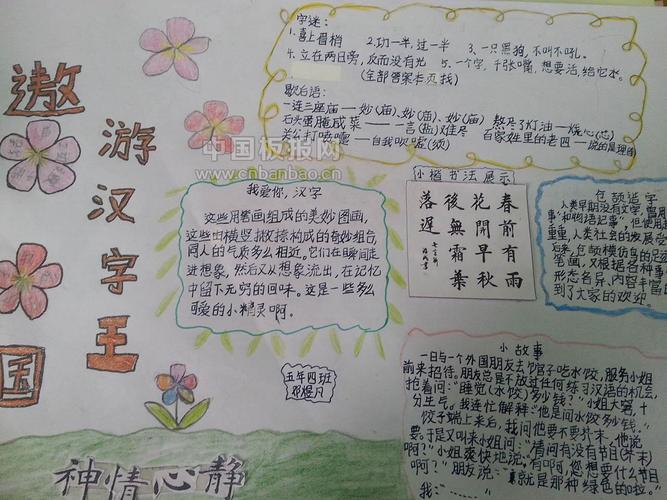 遨
游
汉
字
王
国
字迷：
1.喜上眉梢 2.功一半，过一半 3、一只黑狗，不叫不吼。
4.立在两日旁，反而没有光 5.一个字，千张嘴，想要活，给它水。
（全部答案本页找）
歇后语：
一连三座庙——妙（庙）、妙（庙）、妙（庙） 熬尽了灯油——烧心（芯）
石头蛋腌咸菜——一言（盐）难尽 百家姓里的老四——说的是理
关公打喷嚏——自我吹嘘（须）
中国板报网
www.cnbanbao.cn
我爱你，汉字
这些用笔画组成的美妙图画，
这些由横竖撇捺构成的奇妙组合，
同人的气质多么相近。它们在瞬间走
进想象，然后又从想象流出，在记忆
中留下无穷的回味。这是一些多么
可爱的小精灵啊。
小楷书法展示
春前有雨
花開早秋
後無霜葉
落遲
仓颉造字
人类早期没有文字，曾用
事”和物语记事”，但使用
重重，人类社会的发展
后来，仓颉模仿鸟的足迹
笔画，又根据各种事
形态各异、内容丰富的
到了大家的欢迎
五年四班
小故事
一日与一个外国朋友去饣官子吃水饺，服务小姐
前来招待。朋友总是不放过任何练习汉语的机会，
抢着问：“睡觉（水饺）多少钱？”小姐大窘，十
分生气。我连忙解释：“他是问水饺多少钱。”
饺子端上来后，我问他要不要芥末，他说
要。于是又叫来小姐问：“请问有没有节目（芥末）
啊？”小姐爽快地说：“有啊，您想要什么节目
啊？”朋友说：“就是那种绿色的啦。”
我：……
神情心静